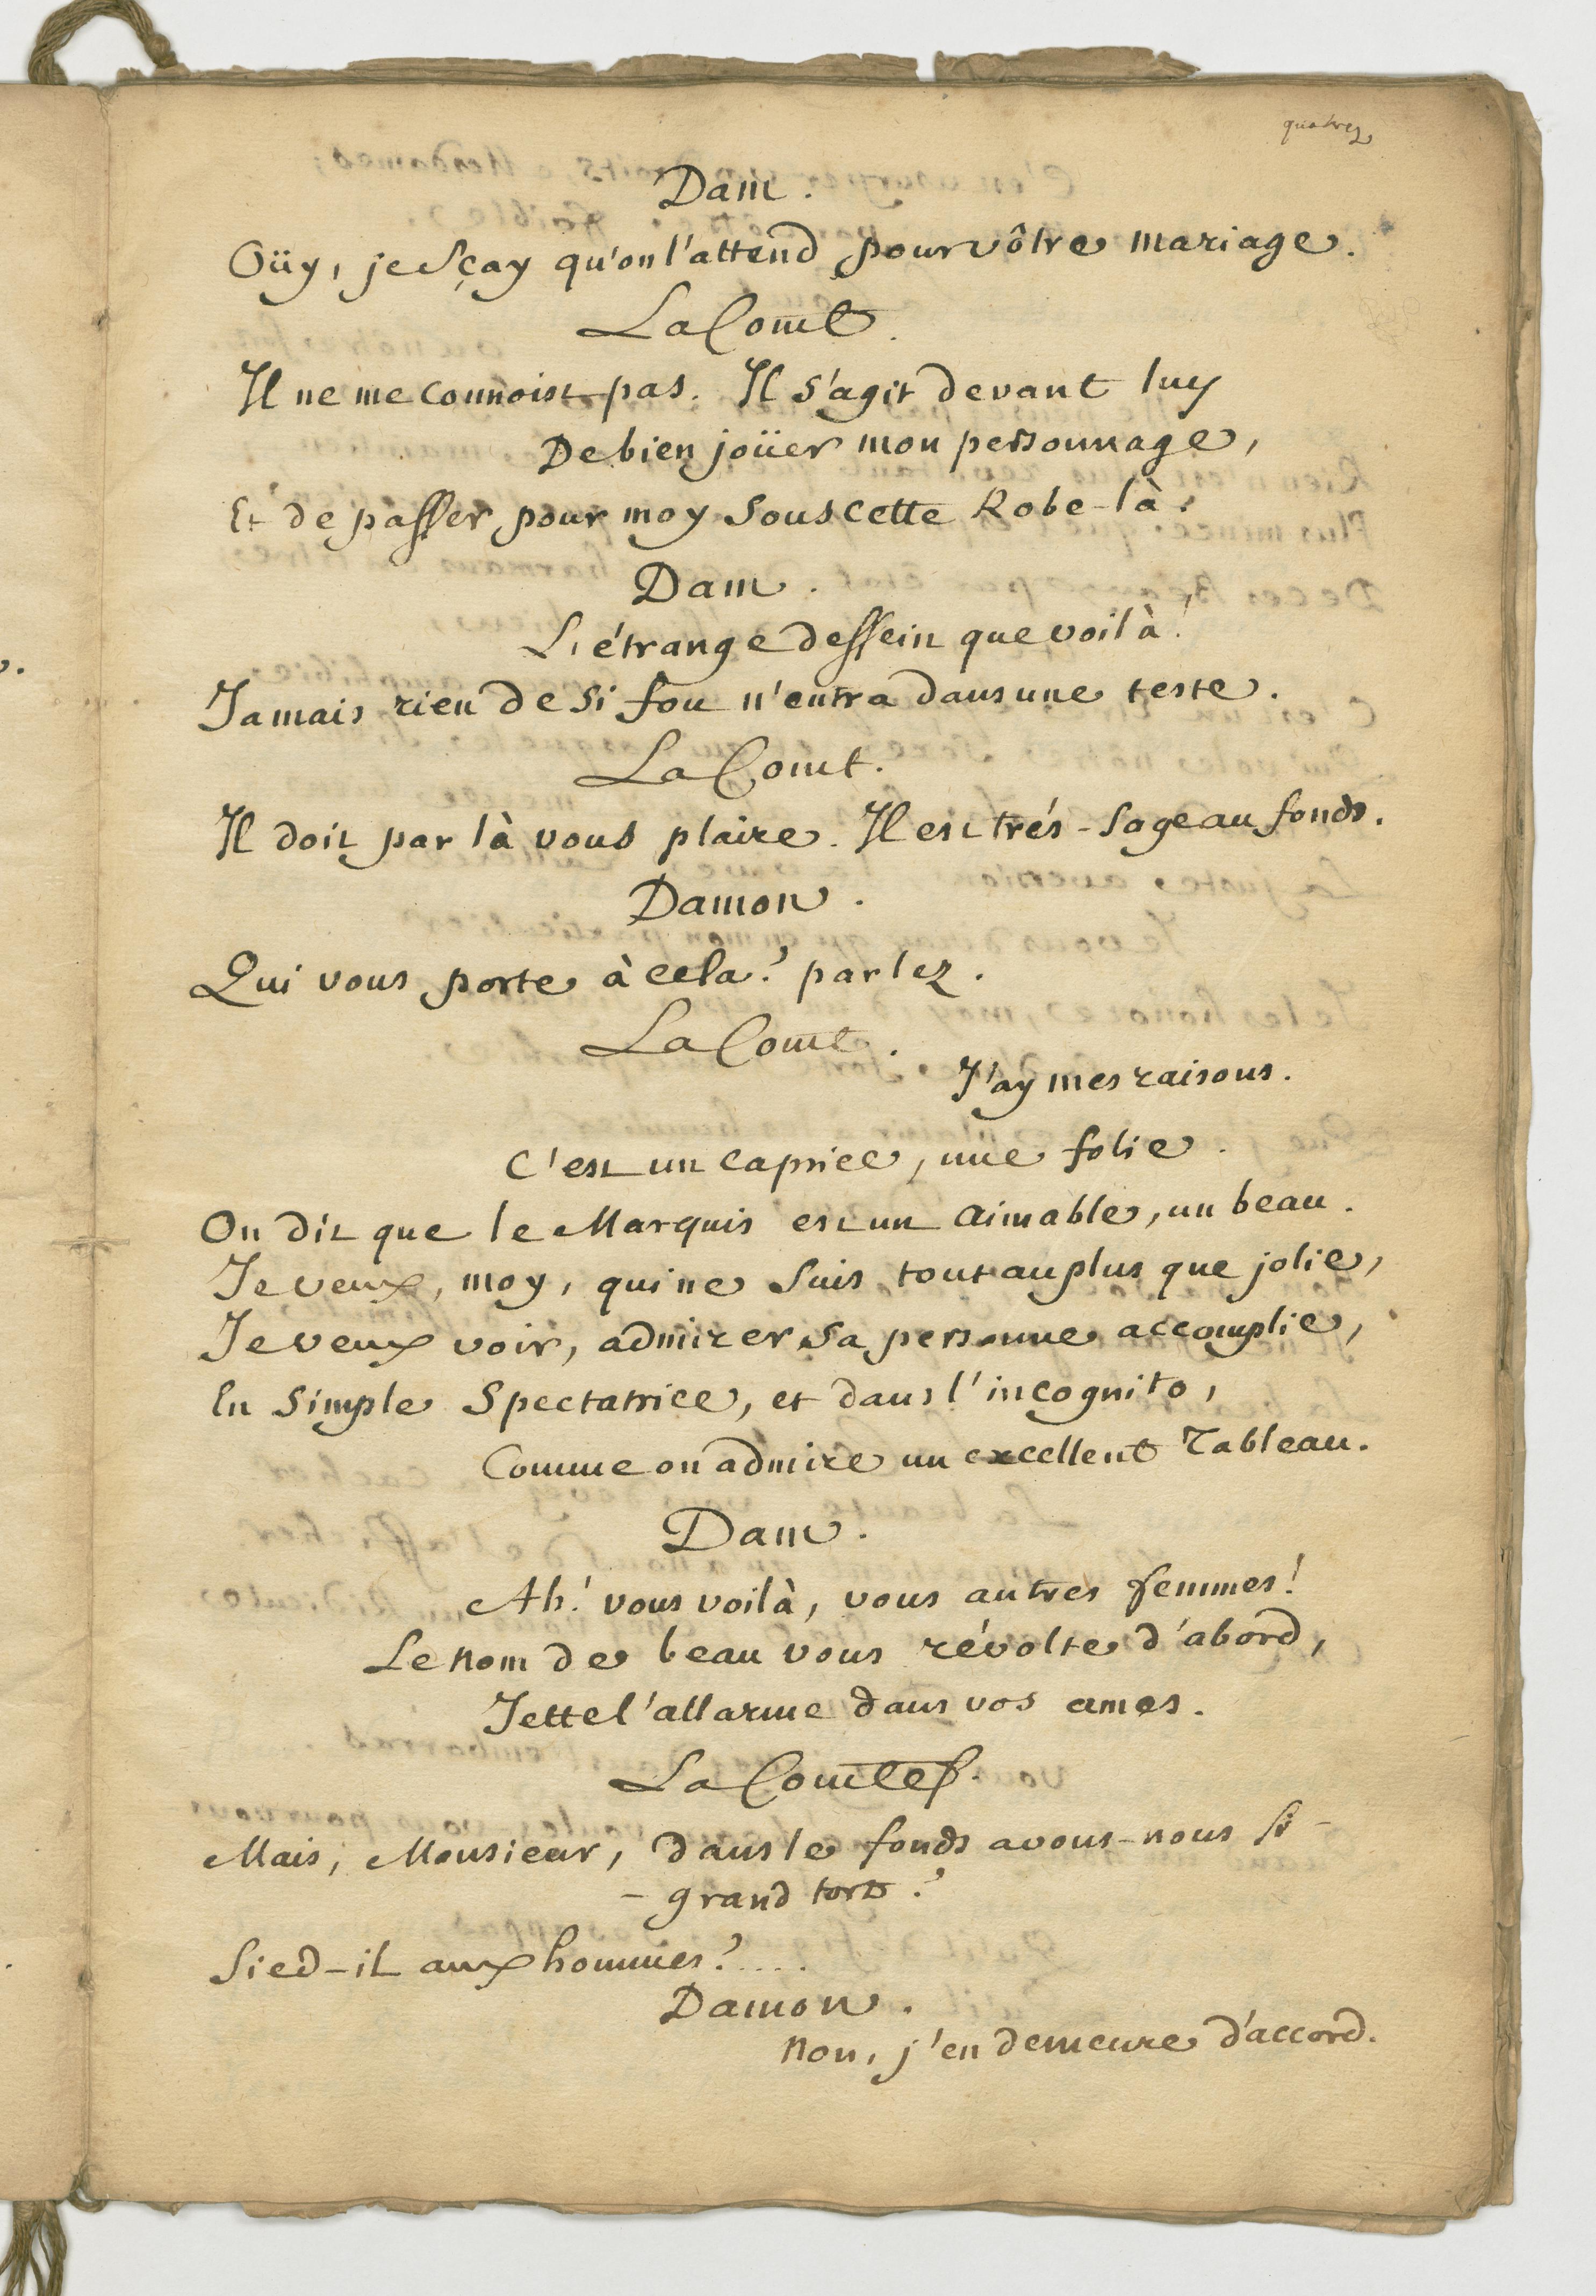 quatre
Dam.
Oüy, je sçay qu'on l'attend pour vôtre mariage.
La Comt.
Il ne me connoist pas. Il s'agit devant luy
De bien joüer mon personnage,
Et de passer pour moy sous cette Robe-là.
Dam.
L'étrange dessein que voilà!
Jamais rien de si fou n'entra dans une teste.
La Comt.
Il doit par là vous plaire. Il est trés-sage au fonds.
Damon.
Qui vous porte à cela? parlez.
La Comt.
J'ay mes raisons.
C'est un caprice, une folie.
On dit que le Marquis est un aimable, un beau.
Je veux, moy, qui ne suis tout au plus que jolie,
Je veux voir, admirer sa personne accomplie,
En simple Spectatrice, et dans l'incognito,
Comme on admire un excellent Tableau.
Dam.
Ah! vous voilà, vous autres femmes!
Le nom de beau vous révolte d'abord,
Jette l'allarme dans vos ames.
La Comtess.
Mais, Monsieur, dans le fonds avons-nous si -
- grand tort?
Sied-il aux hommes?....
Damon.
Non, j'en demeure d'accord.